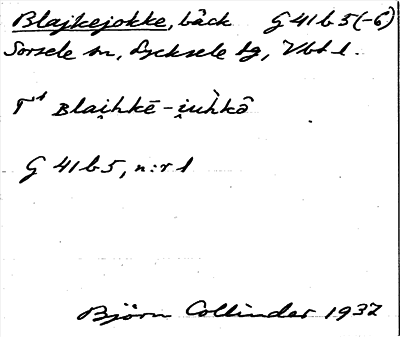 Blajkejokke, bäck G 41 b 5 (-6)
Sorsele sn, Lycksele tg, Vbt l.
T¹ Blai̯hkē-i̯uh̀kô
G 41 b 5, n:r 1
Björn Collinder 1937